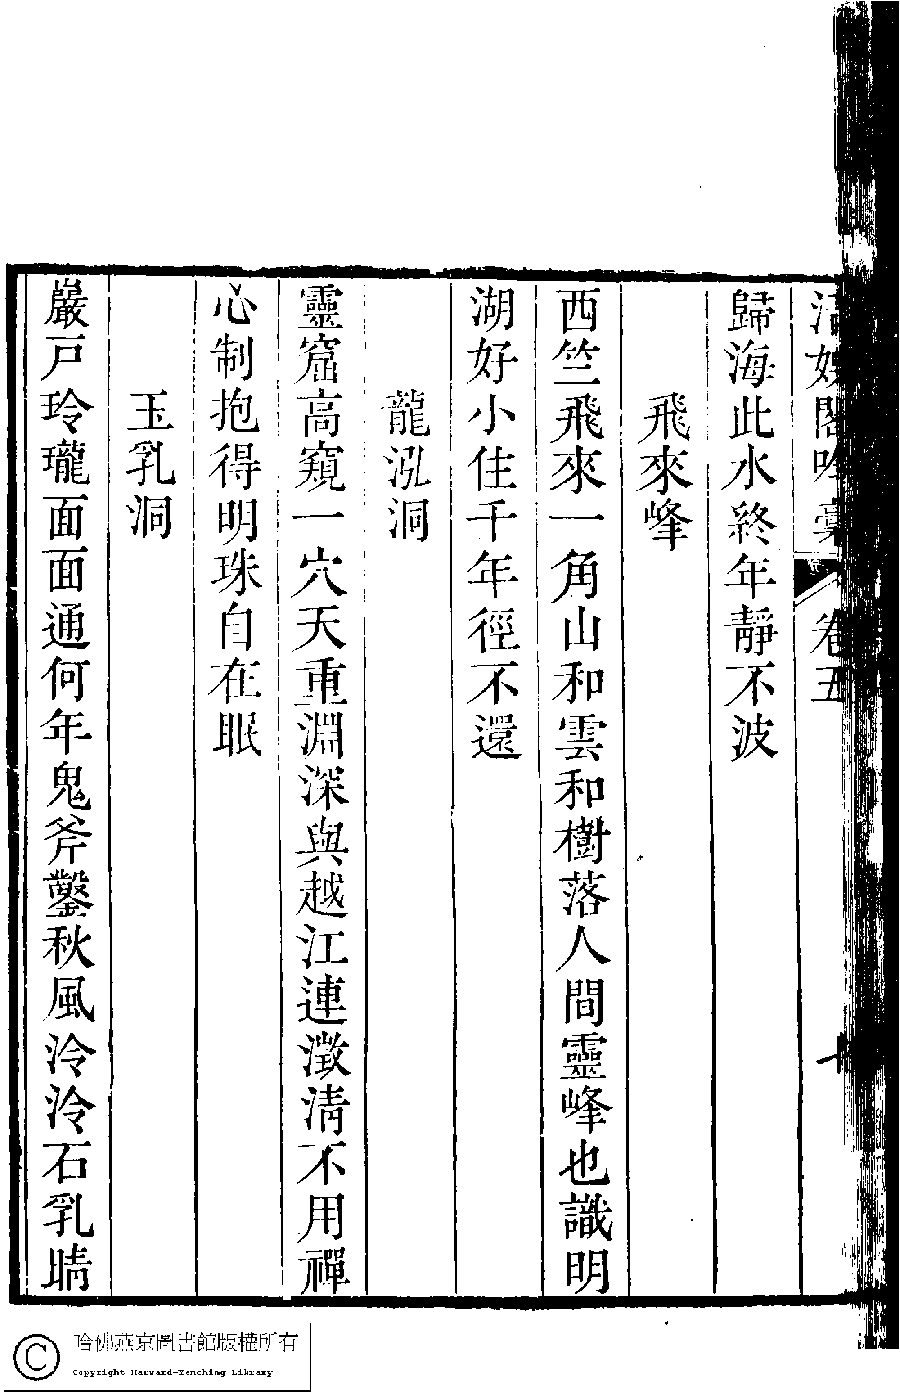 清娛閣吟稾 卷五
歸海此水終年靜不波
飛來峰
西竺飛來一角山和雲和樹落人間靈峰也識明
湖好小住千年徑不還
龍泓洞
靈窟高窺一穴天重淵深與越江連澂清不用禪
心制抱得明珠自在眠
玉乳洞
巖戸玲瓏面面通何年鬼斧鑿秋風泠泠石乳晴
哈佛燕京圖書館版權所有
Copyright Harvard-Yenching Library